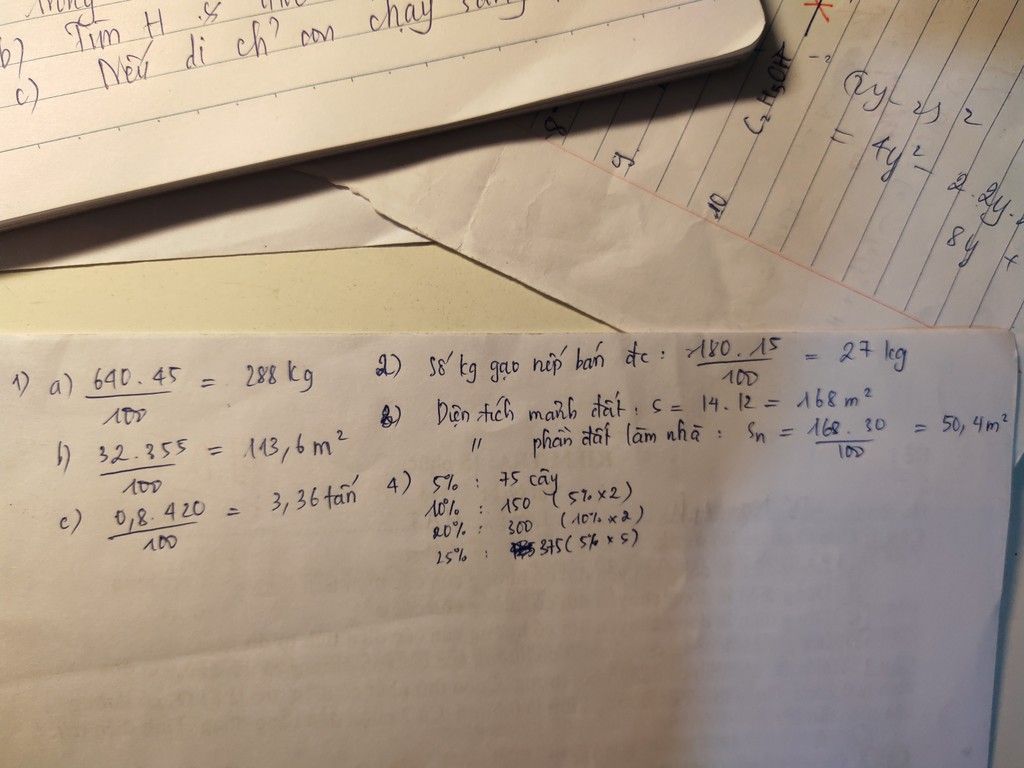 b) Tìm H
c) Nếu di ch' con chạy sang
8
9
10
C₂H₅OH
(2y-2)²
= 4y² - 2.2y.
8y +
1) a) 640.45/100 = 288 kg
b) 32.355/100 = 113,6 m²
c) 0,8.420/100 = 3,36 tấn
2) Số kg gạo nếp bán đc : 180.15/100 = 27 kg
Diện tích mảnh đất : S = 14.12 = 168 m²
" phần đất làm nhà : Sn = 168.30/100 = 50,4 m²
4) 5% : 75 cây
10% : 150 (5% x 2)
20% : 300 (10% x 2)
25% : 375 (5% x 5)